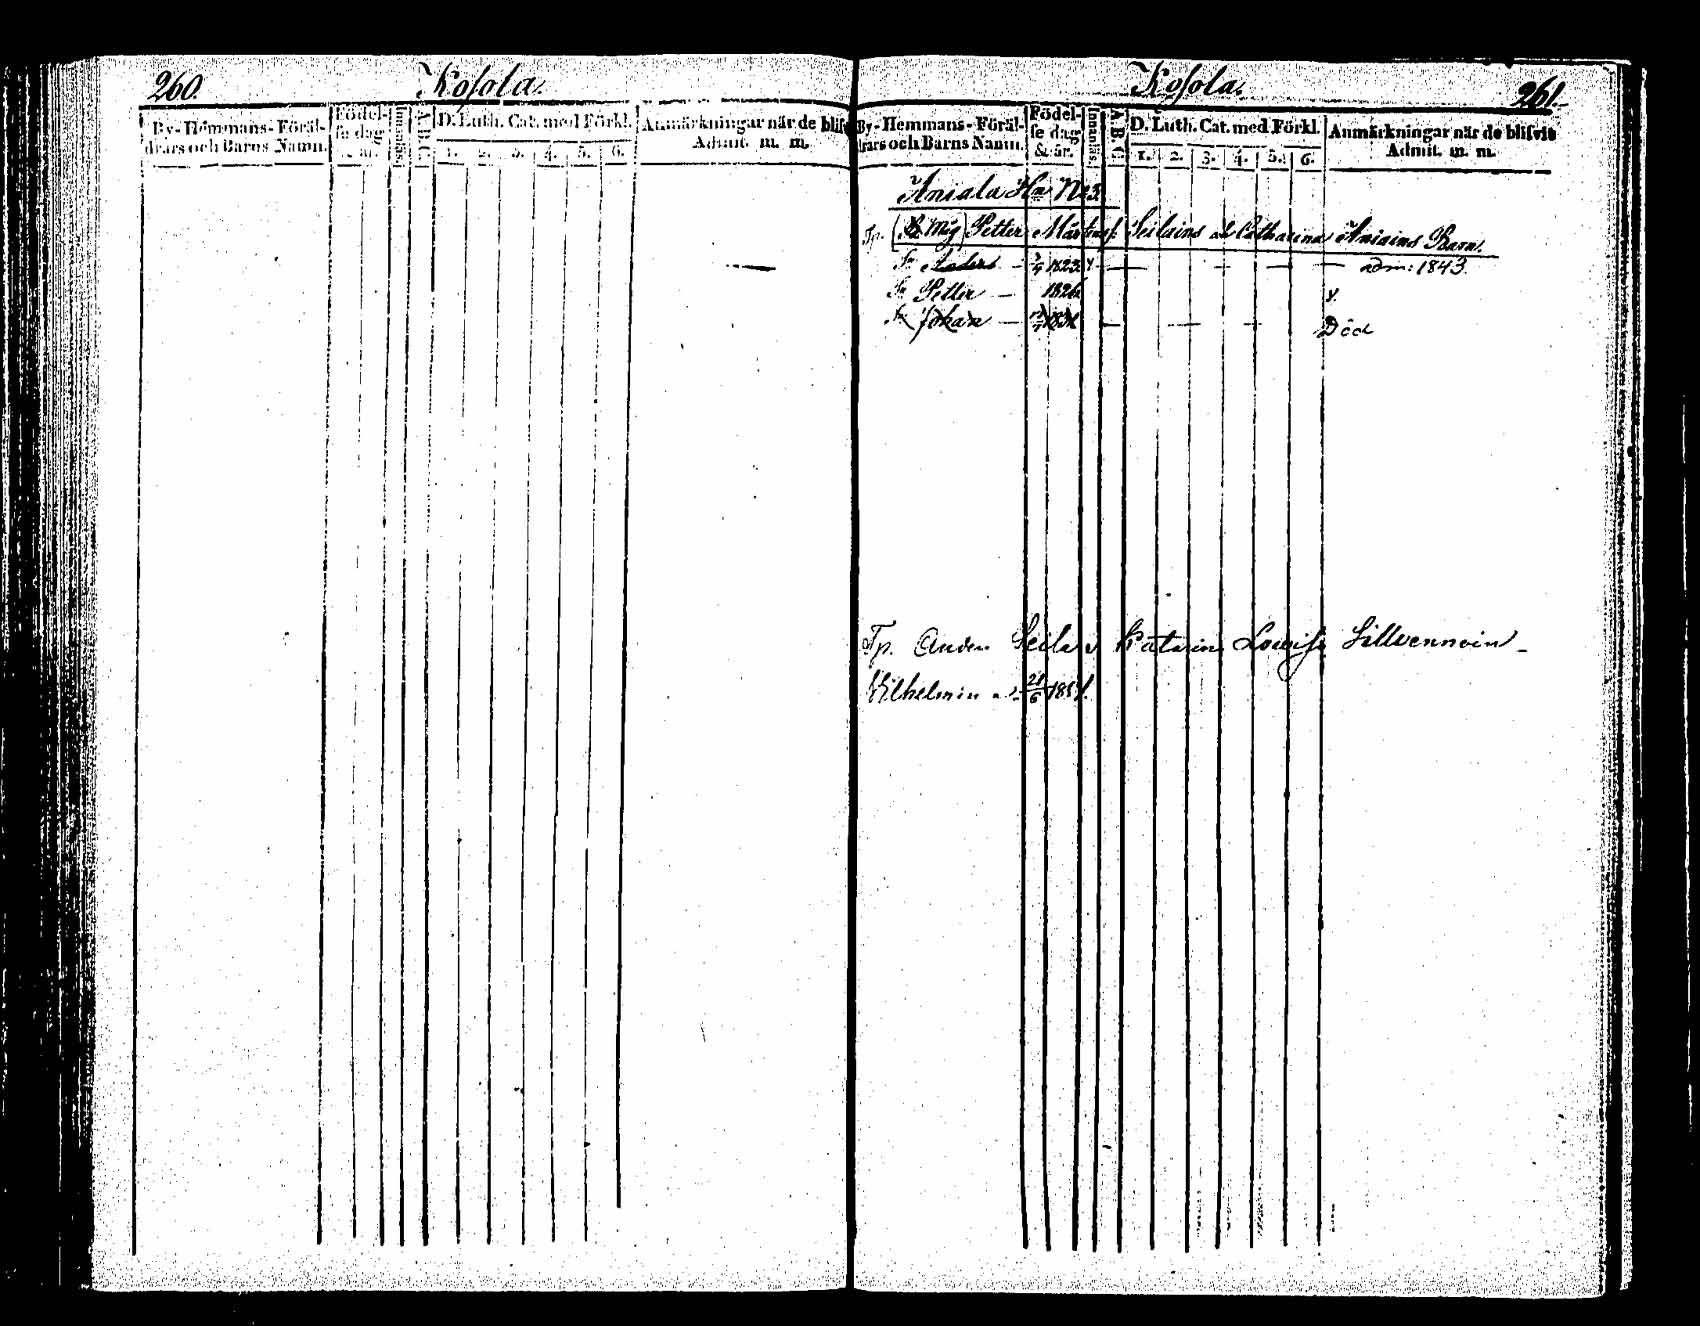 260.
Kosola.
By-Hemmans-Föräl-
drars och Barns Namn.
Födel-
se dag
Innanläs.
A.B.C.
D. Luth. Cat. med Förkl.
1. 2. 3. 4. 5. 6.
Anmärkningar när de blifv
Admit. m. m.
Kosola.
261.
By-Hemmans-Föräl-
drars och Barns Namn.
Födel-
se dag
& år.
Innanläs.
A.B.C.
D. Luth. Cat. med Förkl.
1. 2. 3. 4. 5. 6.
Anmärkningar när de blifvit
Admit. m. m.
Aniala Hm N 3
Tp. Petter Mårtens Seilains och Catharina Aniains Barn.
Sn Anders 1823 adm: 1843.
Sn Petter — 1826
Sn Johan — 1831 Död
Tp. Anders Seila Katarina Lovisa Sillvennoin
Vilhelmina 21/6